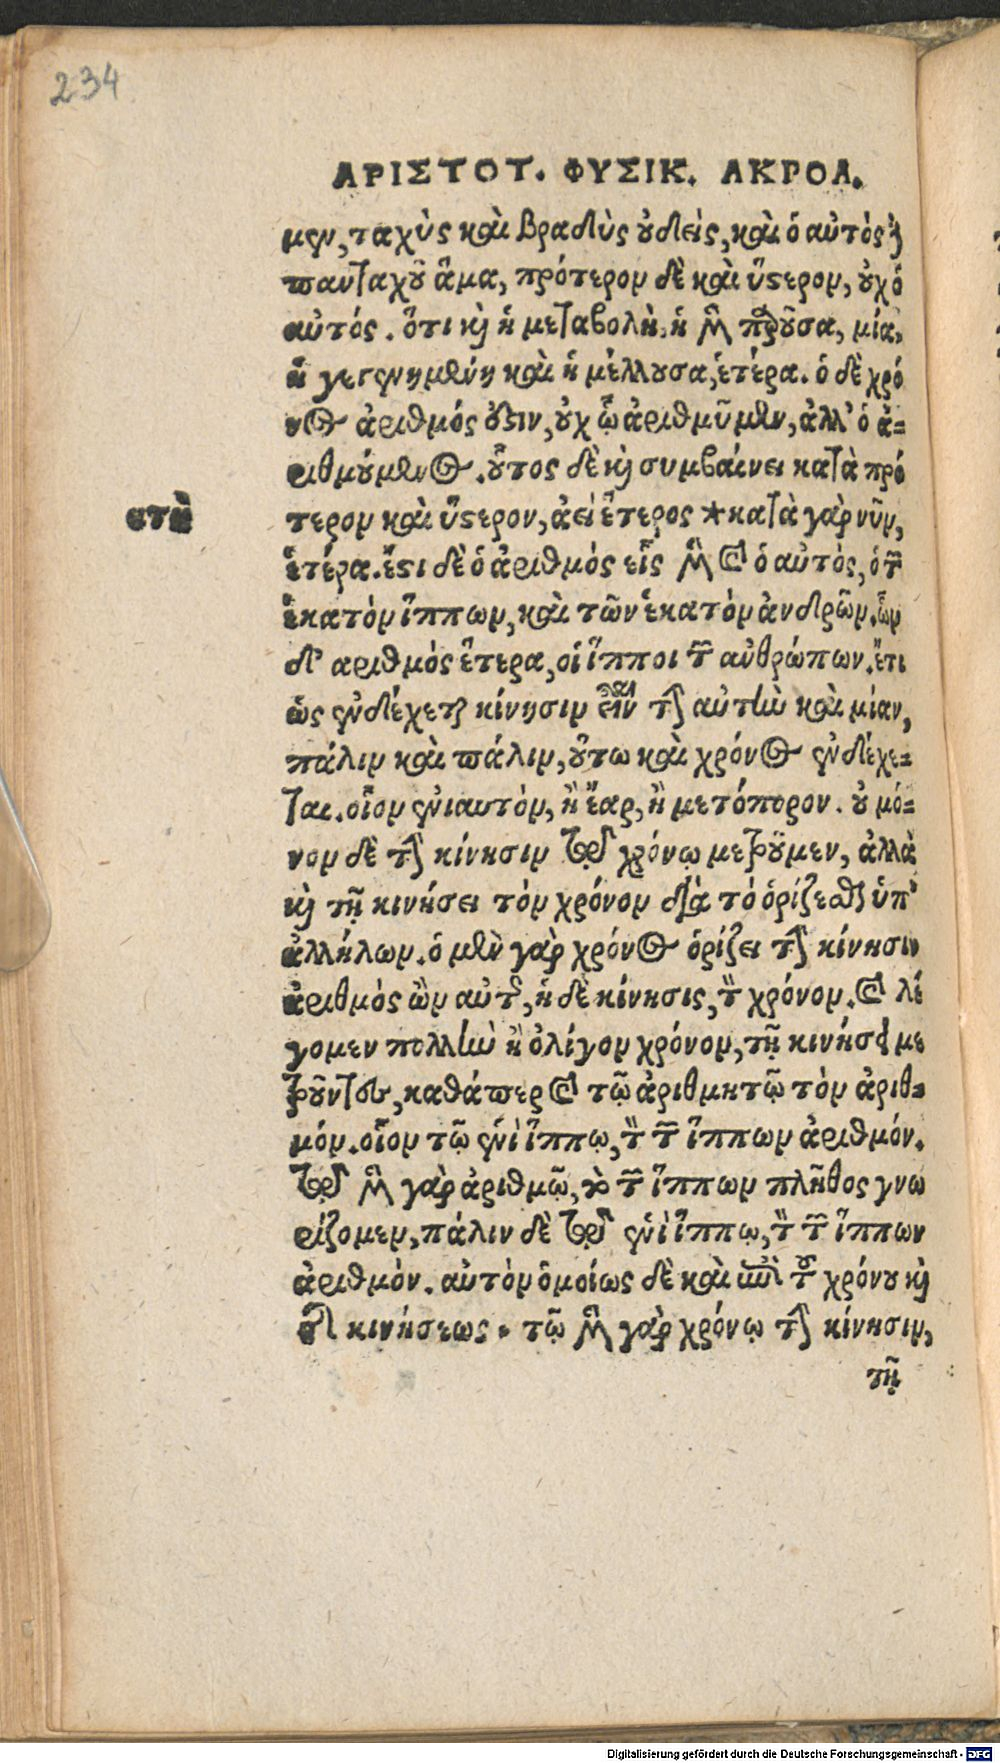 234
ΑΡΙΣΤΟΤ. ΦΥΣΙΚ. ΑΚΡΟΑ.
μεν, ταχὺς καὶ βραδὺς οὐδείς, καὶ ὁ αὐτὸς δὲ
πανταχοῦ ἅμα, πρότερον δὲ καὶ ὕστερον, οὐχ ὁ
αὐτός. ὅτι καὶ ἡ μεταβολὴ, ἡ μὲν παροῦσα, μία,
ἡ γεγενημένη καὶ ἡ μέλλουσα, ἑτέρα. ὁ δὲ χρό
νος ἀριθμός ἐστιν, οὐχ ᾧ ἀριθμοῦμεν, ἀλλ' ὁ ἀ-
ριθμούμενος. οὗτος δὲ καὶ συμβαίνει κατὰ πρό
τερον καὶ ὕστερον, ἀεὶ ἕτερος * κατὰ γὰρ νῦν,
ἑτέρα. ἔστι δὲ ὁ ἀριθμὸς εἷς μὲν καὶ ὁ αὐτὸς, ὁ τῶν
ἑκατὸν ἵππων, καὶ τῶν ἑκατὸν ἀνδρῶν. ὧν
δ' αριθμὸς ἕτερα, οἱ ἵπποι τῶν ανθρώπων. ἔτι
ὡς ἐνδέχεται κίνησιν εἶναι τὴν αὐτὴν καὶ μίαν,
πάλιν καὶ πάλιν, οὕτω καὶ χρόνος ἐνδέχε-
ται. οἷον ἐνιαυτὸν, ἢ ἔαρ, ἢ μετόπορον. οὐ μό-
νον δὲ τὴν κίνησιν τῷ χρόνῳ μετροῦμεν, ἀλλὰ
καὶ τῇ κινήσει τὸν χρόνον διὰ τὸ ὁρίζεσθαι ὑπ'
ἀλλήλων. ὁ μὲν γὰρ χρόνος ὁρίζει τὴν κίνησιν
ἀριθμὸς ὢν αὐτῆς, ἡ δὲ κίνησις, τὸν χρόνον. καὶ λέ
γομεν πολλὺν ἢ ὀλίγον χρόνον, τῇ κινήσει με
τροῦντες, καθάπερ καὶ τῷ ἀριθμητῷ τὸν ἀριθ-
μόν. οἷον τῷ ἑνὶ ἵππῳ, τὸν τῶν ἵππων ἀριθμόν.
τῷ μὲν γὰρ ἀριθμῷ, τὸ τῶν ἵππων πλῆθος γνω
ρίζομεν, πάλιν δὲ τῷ ἑνὶ ἵππῳ, τὸν τῶν ἵππων
ἀριθμὸν. αὐτὸν ὁμοίως δὲ καὶ ἐπὶ τοῦ χρόνου καὶ
τῆς κινήσεως. τῷ μὲν γὰρ χρόνῳ τὴν κίνησιν,
τῇ
Digitalisierung gefördert durch die Deutsche Forschungsgemeinschaft - DFG